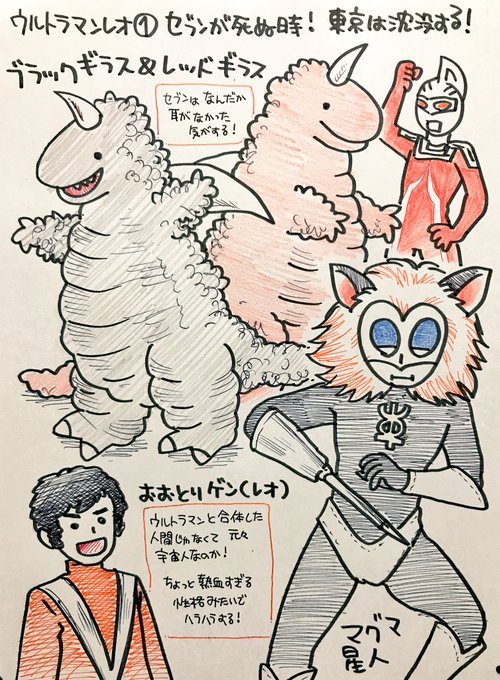 ウルトラマンレオ① セブンが死ぬ時! 東京は沈没する!
ブラックギラス&レッドギラス
セブンは なんだか
耳がなかった
気がする!
おおとりゲン(レオ)
ウルトラマンと合体した
人間じゃなくて 元々
宇宙人なのか!
ちょっと 熱血すぎる
性格みたいで
ハラハラする!
マグマ
星人